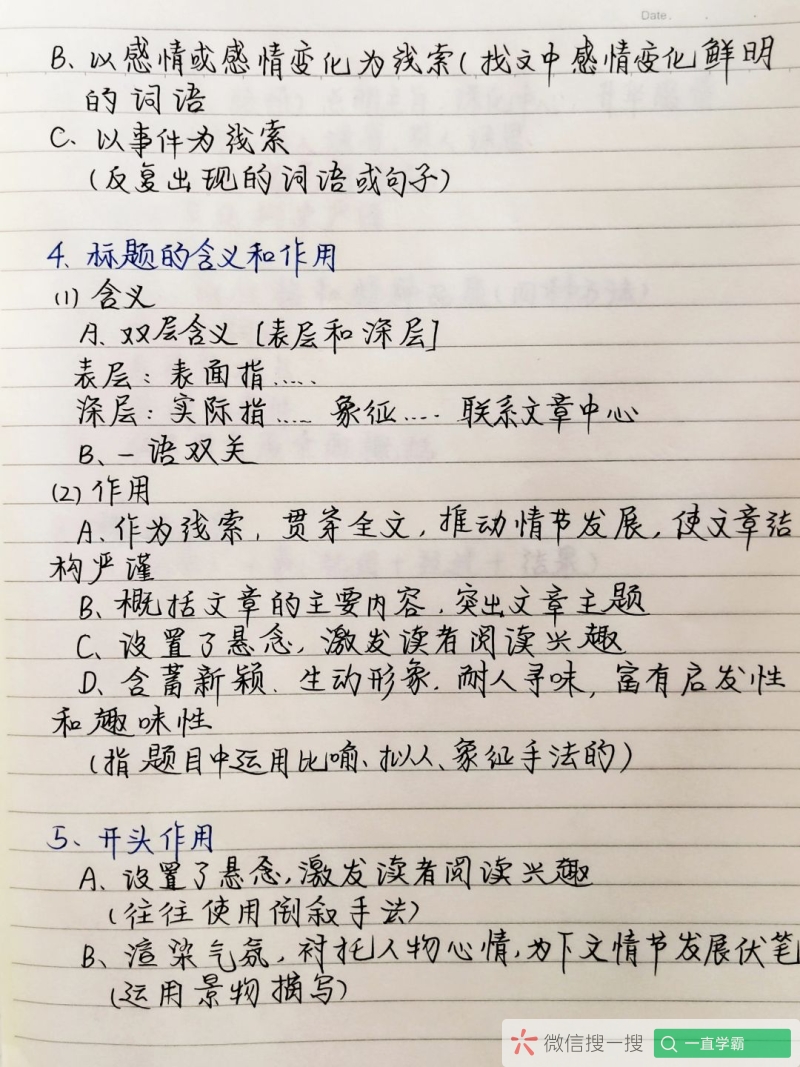 Date.
B、以感情或感情变化为线索(找文中感情变化鲜明
的词语
C、以事件为线索
(反复出现的词语或句子)
4、标题的含义和作用
(1)含义
A、双层含义[表层和深层]
表层：表面指……
深层：实际指…… 象征…… 联系文章中心
B、一语双关
(2)作用
A、作为线索，贯穿全文，推动情节发展，使文章结
构严谨
B、概括文章的主要内容，突出文章主题
C、设置了悬念，激发读者阅读兴趣
D、含蓄新颖、生动形象、耐人寻味，富有启发性
和趣味性
(指题目中运用比喻、拟人、象征手法的)
5、开头作用
A、设置了悬念，激发读者阅读兴趣
(往往使用倒叙手法)
B、渲染气氛，衬托人物心情，为下文情节发展伏笔
(运用景物描写)
微信搜一搜 一直学霸